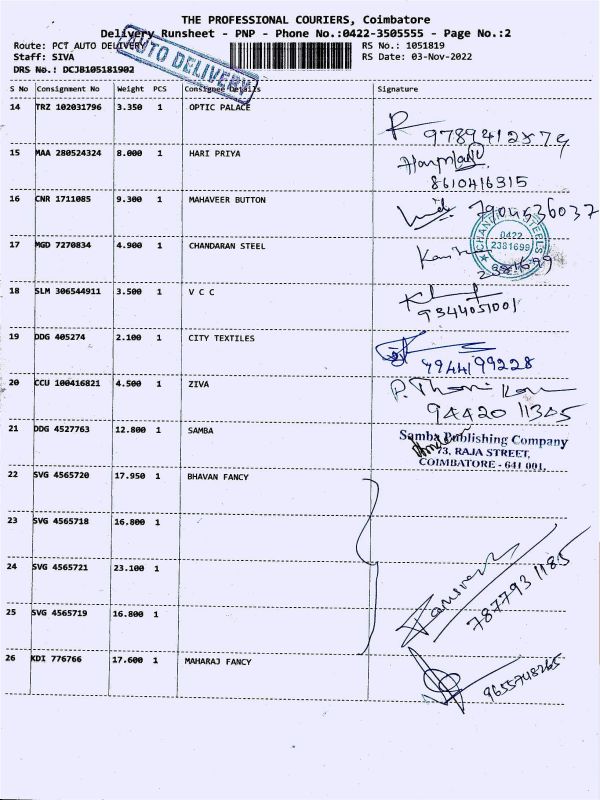 THE PROFESSIONAL COURIERS, Coimbatore
Delivery Runsheet - PNP - Phone No.:0422-3505555 - Page No.:2
Route: PCT AUTO DELIVERY RS No.: 1051819
Staff: SIVA RS Date: 03-Nov-2022
DRS No.: DCJB105181902
AUTO DELIVERY
S No Consignment No Weight PCS Consignee Details Signature
14 TRZ 102031796 3.350 1 OPTIC PALACE
15 MAA 280524324 8.000 1 HARI PRIYA
8610416315
16 CNR 1711085 9.300 1 MAHAVEER BUTTON
7904536037
17 MGD 7270834 4.900 1 CHANDARAN STEEL
0422
2381699
2381699
18 SLM 306544911 3.500 1 V C C
9344051001
19 DDG 405274 2.100 1 CITY TEXTILES
9944199228
20 CCU 100416821 4.500 1 ZIVA
94420 11345
21 DDG 4527763 12.800 1 SAMBA
Samba Publishing Company
73, RAJA STREET,
COIMBATORE - 641 001.
22 SVG 4565720 17.950 1 BHAVAN FANCY
23 SVG 4565718 16.800 1
24 SVG 4565721 23.100 1
7877931185
25 SVG 4565719 16.800 1
26 KDI 776766 17.600 1 MAHARAJ FANCY
9655748265